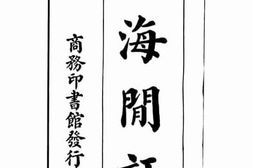 海閒
商務印書館發行